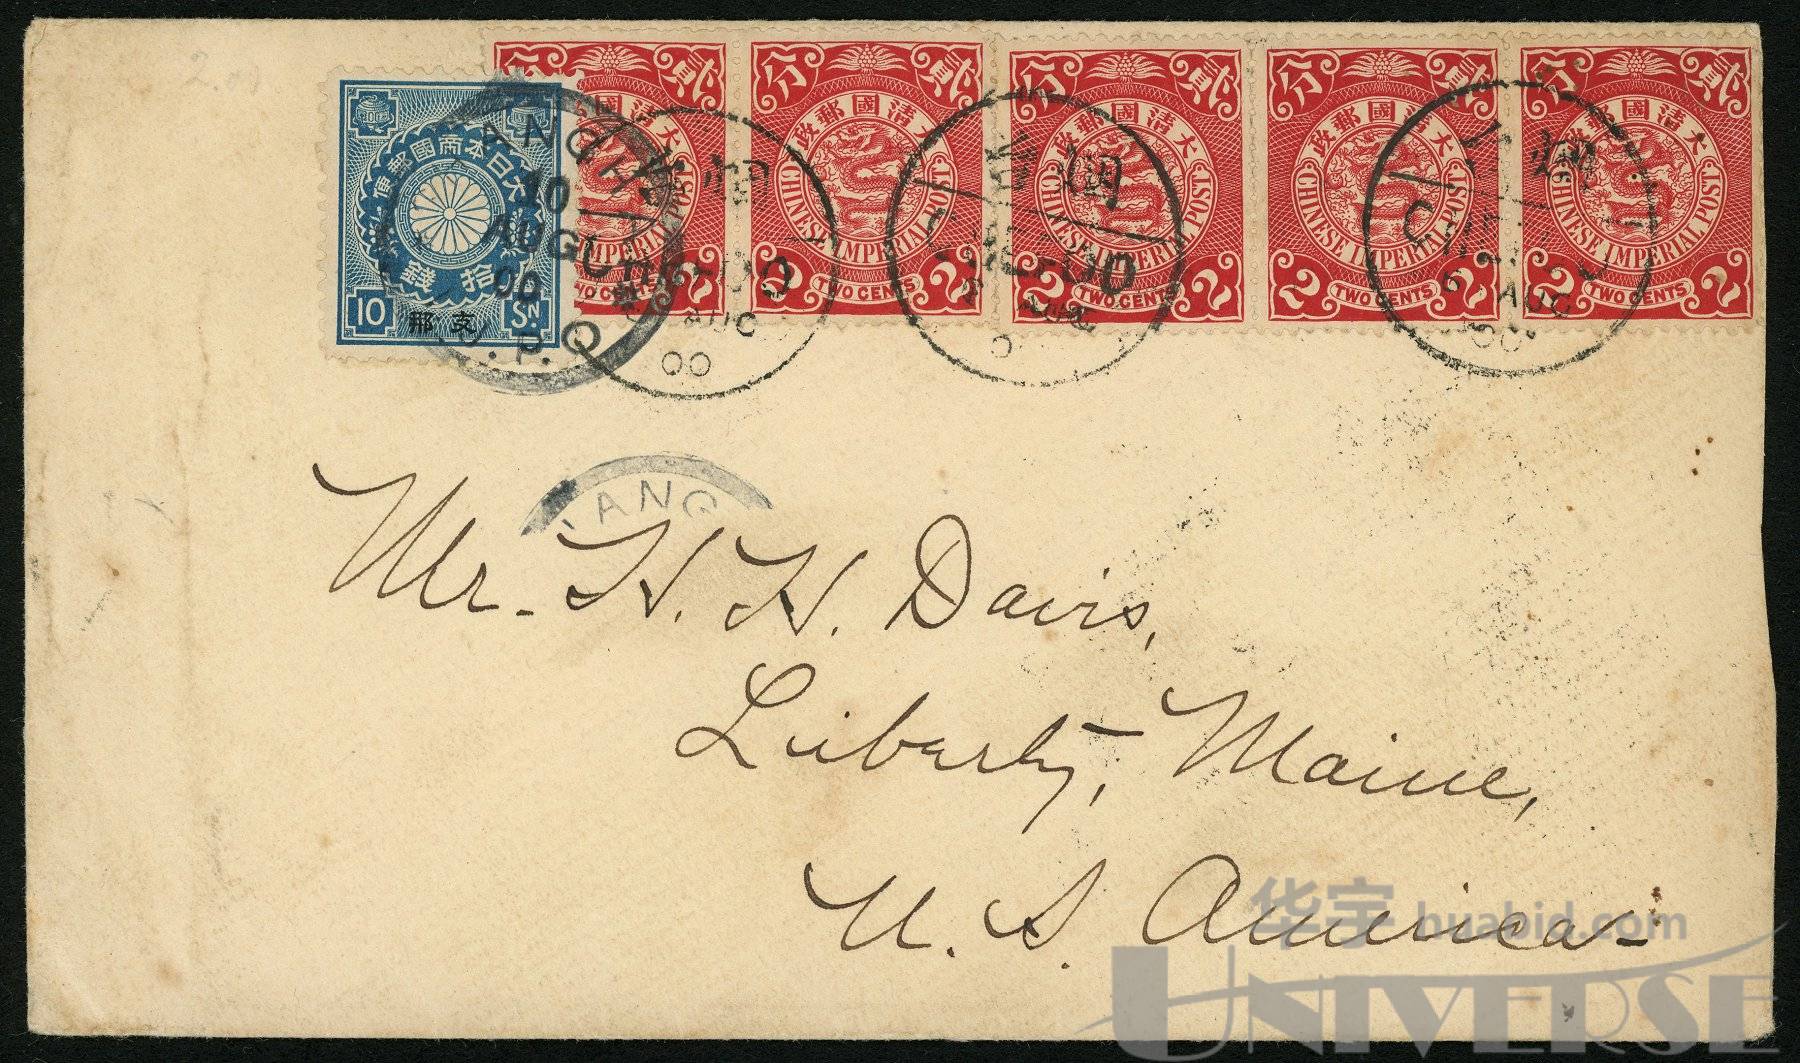 分 貳
大清國郵政
CHINESE IMPERIAL POST
2 TWO CENTS 2
分 貳
大清國郵政
CHINESE IMPERIAL POST
2 TWO CENTS 2
分 貳
大清國郵政
CHINESE IMPERIAL POST
2 TWO CENTS 2
分 貳
大清國郵政
CHINESE IMPERIAL POST
2 TWO CENTS 2
大清國郵政
IMPERIAL POST
TWO CENTS 2
大日本帝國郵便
拾錢
10 SN
支那
ANGHA
10
AUGU
00
J.P.O
AUG
00
CHEFOO
AUG
00
ANG
Mr. H. H. Davis,
Liberty, Maine,
U. S. America-
华宇 huabid.com
UNIVERSE